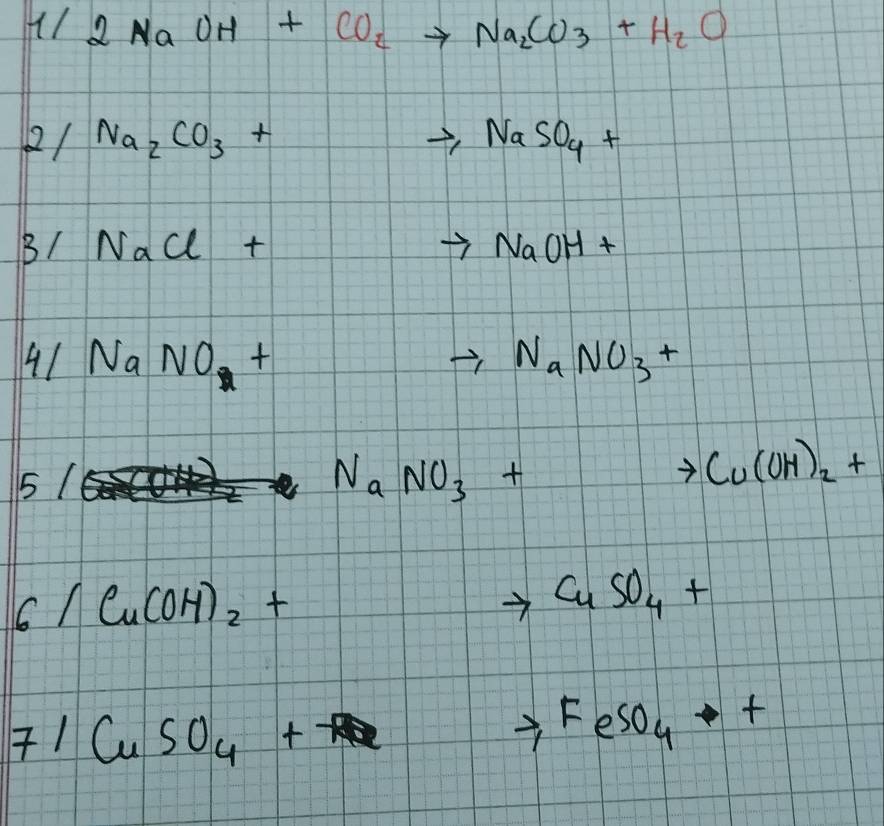 1/ 2 Na OH + CO₂ → Na₂CO3 + H₂O
2/ Na₂CO₃ + → NaSO₄ +
3/ NaCl + → NaOH +
4/ NaNO + → NaNO₃ +
5/ NaNO₃ + → Cu(OH)₂ +
6/ Cu(OH)₂ + → CuSO₄ +
7/ CuSO₄ + → FeSO₄ +